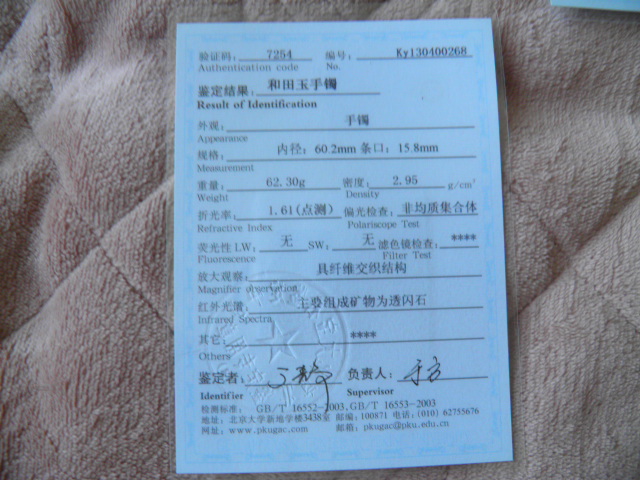 验证码: 7254 编号: Ky130400268
Authentication code No.
鉴定结果: 和田玉手镯
Result of Identification
外观: 手镯
Appearance
规格: 内径: 60.2mm 条口: 15.8mm
Measurement
重量: 62.30g 密度: 2.95 g/cm³
Weight Density
折光率: 1.61(点测) 偏光检查: 非均质集合体
Refractive Index Polariscope Test
荧光性 LW: 无 SW: 无 滤色镜检查: ****
Fluorescence Filter Test
放大观察: 具纤维交织结构
Magnifier observation
红外光谱: 主要组成矿物为透闪石
Infrared Spectra
其它: ****
Others
鉴定者: 负责人:
Identifier Supervisor
检测标准: GB/T 16552-2003,GB/T 16553-2003
地址: 北京大学新地学楼3438室 邮编:100871 电话:(010) 62755676
网址: www.pkugac.com 邮箱: pkugac@pku.edu.cn